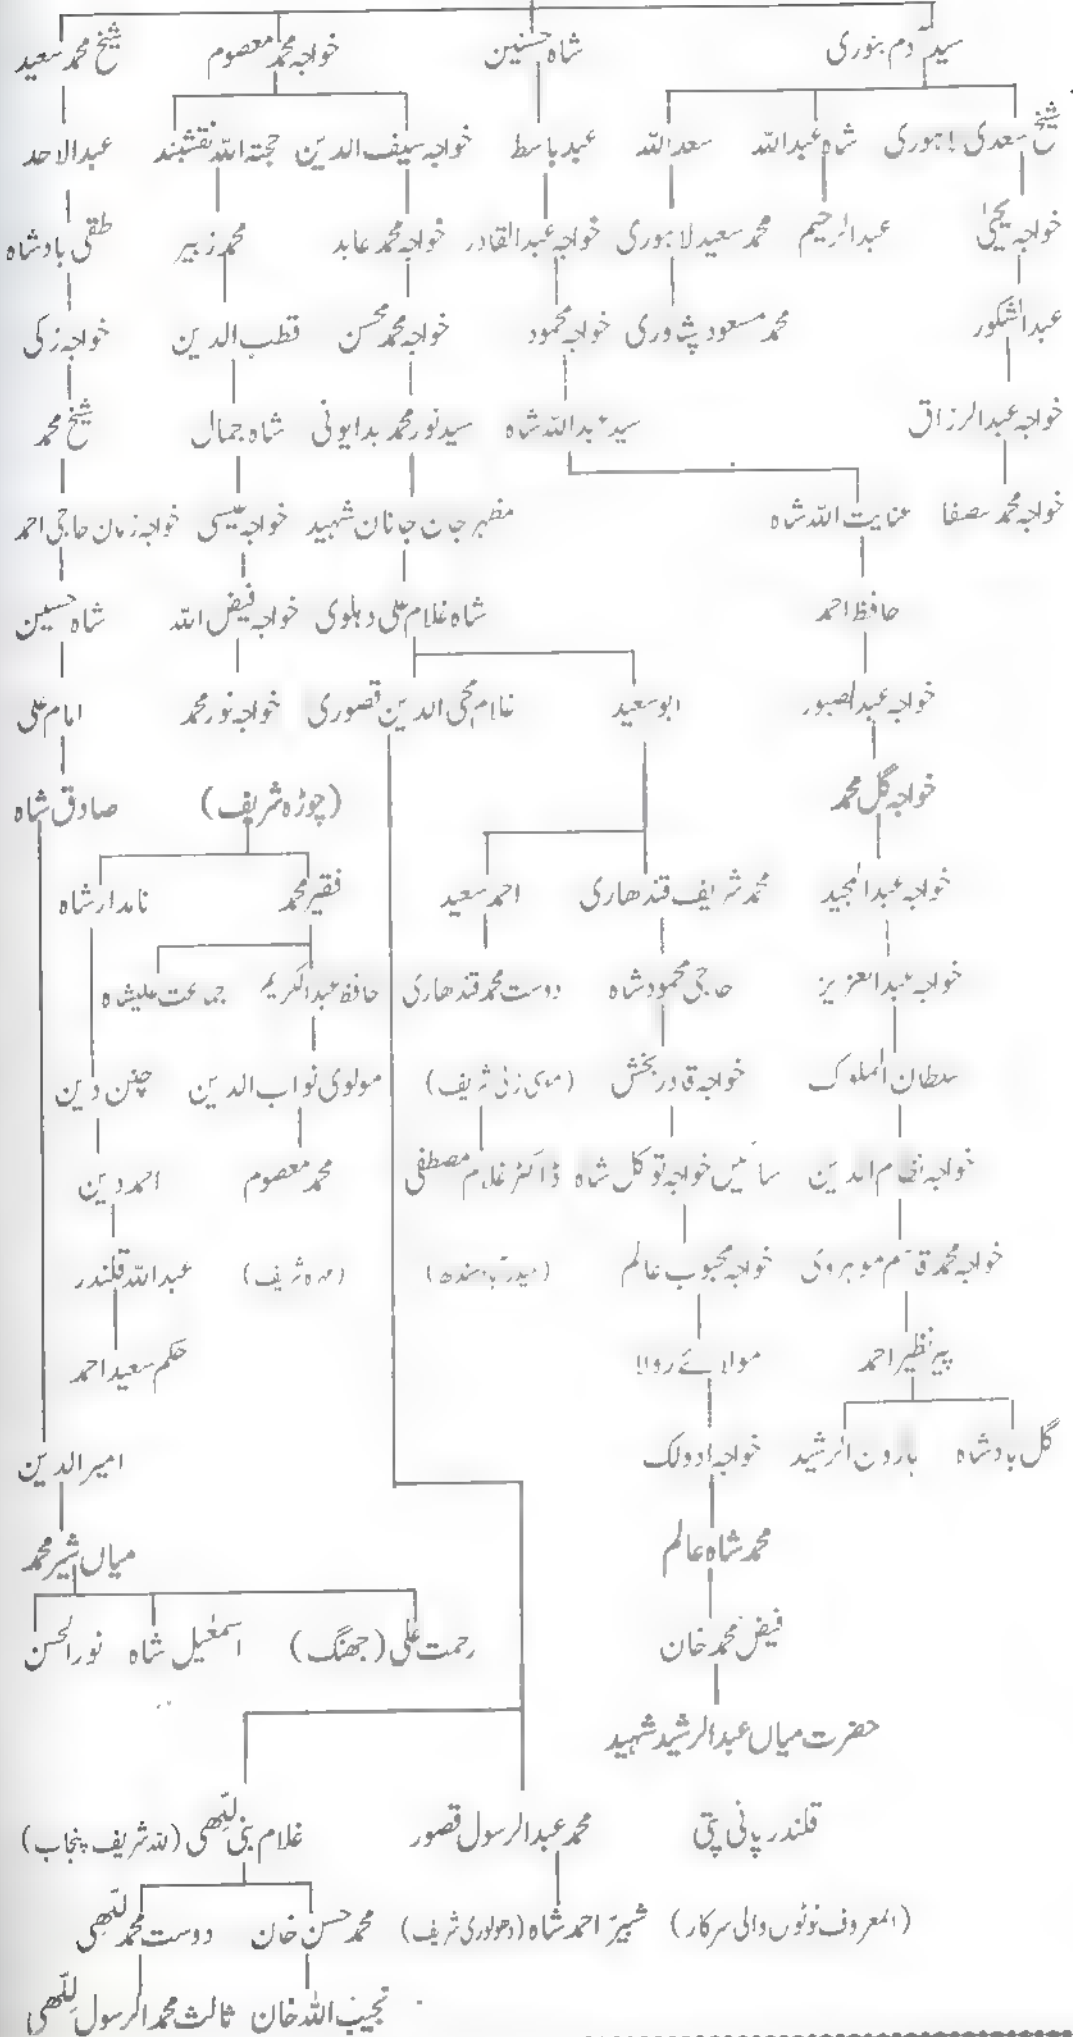 سید آدم بنوری شاہ حسنین خواجہ محمد معصوم شیخ محمد سعید
شیخ سعدی لاہوری شاہ عبداللہ سعداللہ عبدباسط خواجہ سیف الدین حجتہ اللہ نقشبند عبدالاحد
خواجہ یحیٰی عبدالرحیم محمد سعید لاہوری خواجہ عبدالقادر خواجہ محمد عابد محمد زبیر طقی بادشاہ
عبدالشکور محمد مسعود پشوری خواجہ محمود خواجہ محمد محسن قطب الدین خواجہ زکی
خواجہ عبدالرزاق سید عبداللہ شاہ سید نور محمد بدایونی شاہ جمال شیخ محمد
خواجہ محمد صفا عنایت اللہ شاہ مظہر جان جاناں شہید خواجہ عیسی خواجہ زمان حاجی احمد
حافظ احمد شاہ غلام علی دہلوی خواجہ فیض اللہ شاہ حسین
خواجہ عبدالصبور ابو سعید غلام محی الدین قصوری خواجہ نور محمد امام علی
خواجہ گل محمد (چوڑہ شریف) صادق شاہ
خواجہ عبدالمجید محمد شریف قندھاری احمد سعید فقیر محمد نامدار شاہ
خواجہ عبدالعزیز حاجی محمود شاہ دوست محمد قندھاری حافظ عبدالکریم جماعت علیشاہ
سلطان الملوک خواجہ قادر بخش (موسی زئی شریف) مولوی نواب الدین چنن دین
خواجہ نظام الدین سائیں خواجہ توکل شاہ ڈاکٹر غلام مصطفی محمد معصوم احمد دین
خواجہ محمد قاسم موہروی خواجہ محبوب عالم (حیدرآباد سندھ) (موہرہ شریف) عبداللہ قلندر
پیر نظیر احمد مولائے روالا حکم سعید احمد
گل بادشاہ ہارون الرشید خواجہ ادولک امیر الدین
محمد شاہ عالم میاں شیر محمد
فیض محمد خان رحمت علی (جھنگ) اسمعیل شاہ نور الحسن
حضرت میاں عبدالرشید شہید
قلندر پانی پتی محمد عبدالرسول قصور غلام نبی للّٰہی (للہ شریف پنجاب)
(المعروف نوٹوں والی سرکار) شبیر احمد شاہ (دھولوری شریف) محمد حسن خان دوست محمد للّٰہی
نجیب اللہ خان ثالث محمد الرسول للّٰہی